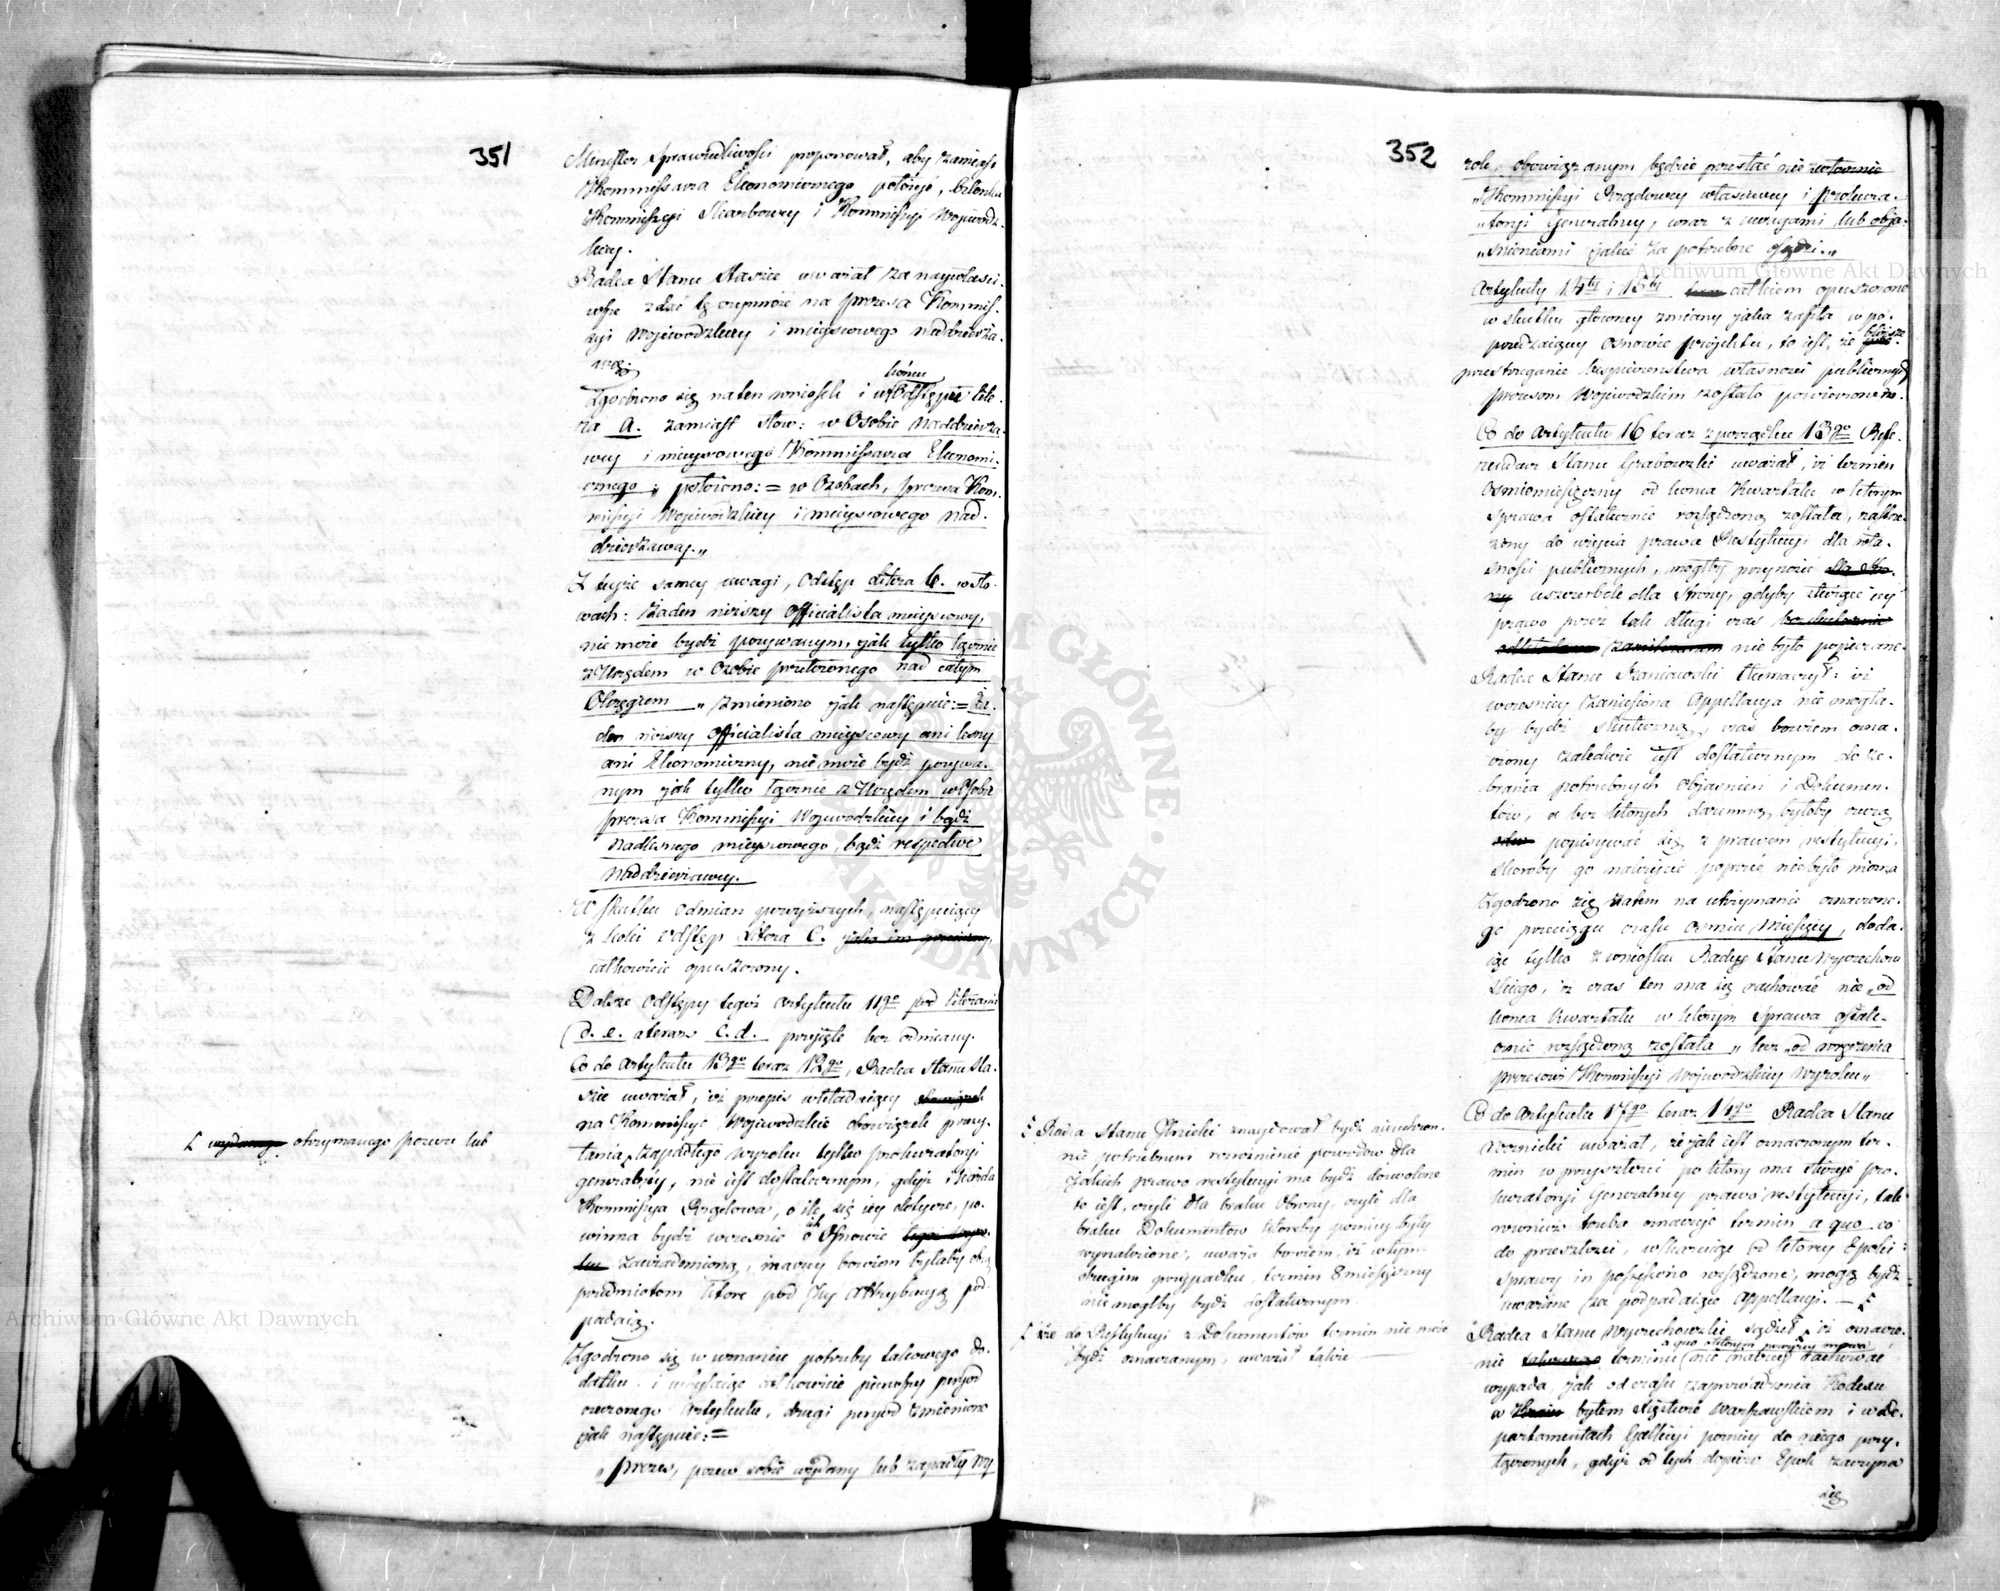 351
Minister Sprawiedliwości proponował, aby zamiast
Kommissarza Ekonomicznego położyć, Członka
Kommissyi Skarbowey i Kommissyi Wojewódz-
kiey.
Radca Stanu Staszic uważał za naywłaści-
wsze zdać tę czynność na Prezesa Kommis-
syi Wojewodzkiey i mieyscowego naddzierża-
wcę.
Zgodzono się na ten wniosek i w końcu Odstępu lite-
ra A. zamiast słow: w Osobie Naddzierża-
wcy i mieyscowego Kommissarza Ekonomi-
cznego „ położono:= w Osobach, Prezesa Kom-
missyi Wojewodzkiey i mieyscowego Nad-
dzierżawcy.„
Z teyże samey uwagi, Odstęp litera b. w sło-
wach: Żaden niższy Officialista mieyscowy,
nie może bydź pozywanym, jak tylko łącznie
z Urzędem w Osobie przełożonego nad całym
Okręgiem „ zmieniono jak następuie:= Ża-
den niższy Officialista mieyscowy ani leśny
ani Ekonomiczny, nie może bydź pozywa-
nym jak tylko łącznie z Urzędem w Osobie
Prezesa Kommissyi Wojewodzkiey i bądź
Nadleśnego mieyscowego, bądź respective
Naddzierżawcy.
W skutku odmian powyższych, następuiący
z kolei Odstęp Litera C.
całkowicie opuszczony.
Dalsze Odstępy tegoż Artykułu 11go pod literami
d. e. a teraz c. d. przyjęte bez odmiany.
Co do Artykułu 13go teraz 12go, Radca Stanu Sta-
szic uważał, iż przepis wkładaiący
na Kommissye Wojewodzkie obowiązek przesy-
łania zapadłego wyroku tylko Prokuratoryi
generalney, nie iest dostatecznym, gdyż i każda
Kommissya Rządowa, o ile się iey dotycze, po-
winna bydź wcześnie o ich Osnowie
zawiadomioną, inaczey bowiem byłaby obcą
przedmiotom które pod Jey Attrybucyą pod-
padaią.
Zgodzono się w uznaniu potrzeby takowego do-
datku i całkowicie pierwszy peryod
rzeczonego Artykułu, drugi peryod zmieniono
jak następuie:=
„Prezes, pozew sobie wydany lub zapadły wy-
otrzymanego pozwu lub
352
rok, obowiązanym będzie przesłać nie zwłocznie
„Kommissyi Rządowey właściwey i Prokura-
„toryi Generalney, wraz z uwagami lub obja-
„śnieniami jakie za potrzebne osądzi.„
Artykuły 14ty i 15ty całkiem opuszczone
w skutku głowney zmiany jaka zaszła w po-
przedzaiącey osnowie projektu, to iest, że bliższe
przestrzeganie bezpieczeństwa własności publiczney
Prezesom Wojewodzkim zostało powierzone.
Co do Artykułu 16 teraz z porządku 13go Refe-
rendarz Stanu Grabowski uważał, iż termin
Osmiomiesięczny od końca Kwartału w którym
Sprawa ostatecznie rozsądzoną została, zastrze-
żony do użycia prawa Restytucyi dla wła-
sności publicznych, mógłby przynosić
uszczerbek dla Strony, gdyby
prawo przez tak długi czas
nie było popierane.
Radca Stanu Kaniowski tłumaczył: iż
wcześniey zaniesiona Appellacya nie mogła-
by bydź skuteczną, czas bowiem ozna-
czony zaledwie iest dostatecznym do ze-
brania potrzebnych objaśnień i Dokumen-
tów, a bez których daremną byłoby rzeczą
popisywać się z prawem restytucyi,
skoroby go należycie poprzeć nie było można.
Zgodzono się zatem na utrzymanie oznaczone-
go przeciągu czasu ośmiu Miesięcy, doda-
iąc tylko z wniosku Radcy Stanu Wyczechow
skiego, iż czas ten ma się rachować nie „od
końca Kwartału w którym Sprawa ostate-
cznie rozsądzoną została „ lecz „od wręczenia
Prezesowi Kommissyi Wojewodzkiey wyroku„
Co do Artykułu 17go teraz 14go Radca Stanu
Woznicki uważał, że jak iest oznaczonym ter-
min w przyszłości po który ma służyć Pro-
kuratoryi Generalney prawo restytucyi, tak
rownież trzeba oznaczyć termin a quo co
do przeszłości, wskazuiąc od którey Epoki
Sprawy in possessorio rozsądzone, mogą bydź
uważane za podpadaiące Appellacyi.
Radca Stanu Wyczechowski sądził, iż oznacze-
nie terminu a quo o którym powyżey mowa rachować
wypada, jak od czasu zaprowadzenia Kodexu
w byłem Xięstwie Warszawskiem i w De-
partamentach Gallicyi poźniey do niego przy-
łączonych, gdyż od tych dopiero Epok zaczyna
się
Radca Stanu znaydował bydź nieuchron-
nie potrzebnem rozróżnienie powodow dla
jakich prawo restytucyi ma bydź dozwolone
to iest, czyli dla braku Obrony, czyli dla
braku Dokumentów któreby poźniey były
wynalezione, uważa bowiem, iż w tym
drugim przypadku, termin 8miesięczny
nie mogłby bydź dostatecznym
że do Restytucyi z Dokumentów termin nie może
bydź oznaczanym, uważał także
Archiwum Główne Akt Dawnych
Archiwum Główne Akt Dawnych
ARCHIWUM GŁÓWNE AKT DAWNYCH